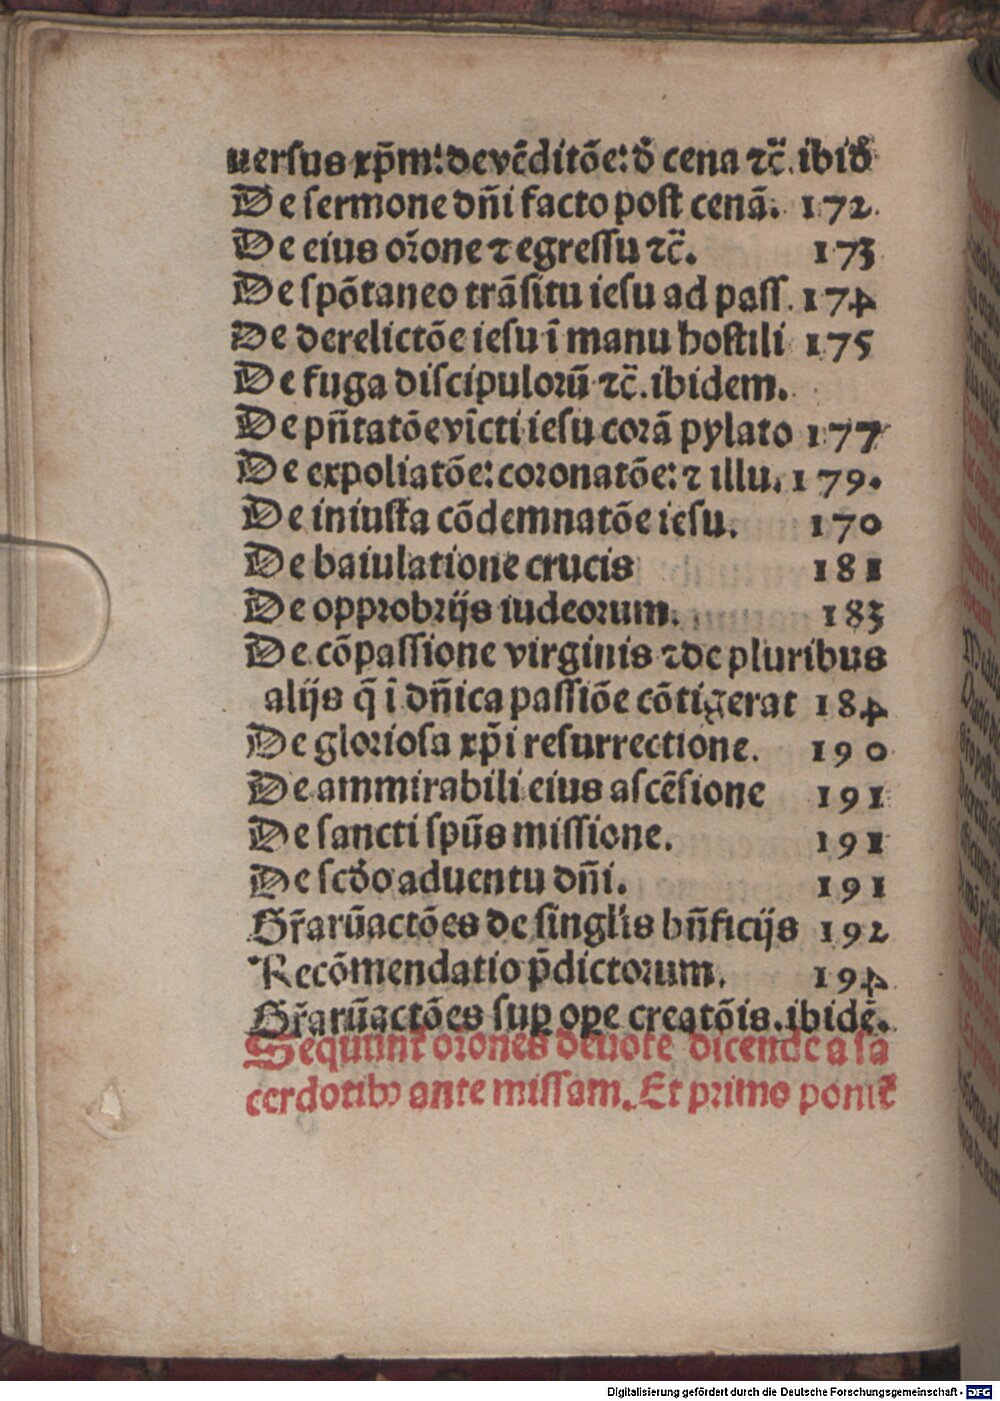 uersus xp̄m: de vēditōe: d̕ cena ⁊c̄. ibid̕
De sermone dn̄i facto post cenā. 172.
De eius or̄one ⁊ egressu ⁊c̄. 173
De spōtaneo trāsitu iesu ad pass. 174
De derelictōe iesu ī manu hostili 175
De fuga discipulorū ⁊c̄. ibidem.
De pn̄tatōe vīcti iesu corā pylato 177
De expoliatōe: coronatōe: ⁊ illu. 179.
De iniusta cōdemnatōe iesu. 170
De baiulatione crucis 181
De opprobrijs iudeorum. 183
De cōpassione virginis ⁊ de pluribus
alijs q̄ ī dn̄ica passiōe cōtigerat 184
De gloriosa xp̄i resurrectione. 190
De ammirabili eius ascēsione 191
De sancti spūs missione. 191
De scd̕o aduentu dn̄i. 191
Gr̄arū actōes de singl̕is bn̄ficijs 192
Recōmendatio p̄dictorum. 194
Gr̄arū actōes suꝑ oꝑe creatōis. ibidē.
Sequunt̕ or̄ones deuote dicende a sa
cerdotibꝫ ante missam. Et primo ponit̕
Digitalisierung gefördert durch die Deutsche Forschungsgemeinschaft - DFG